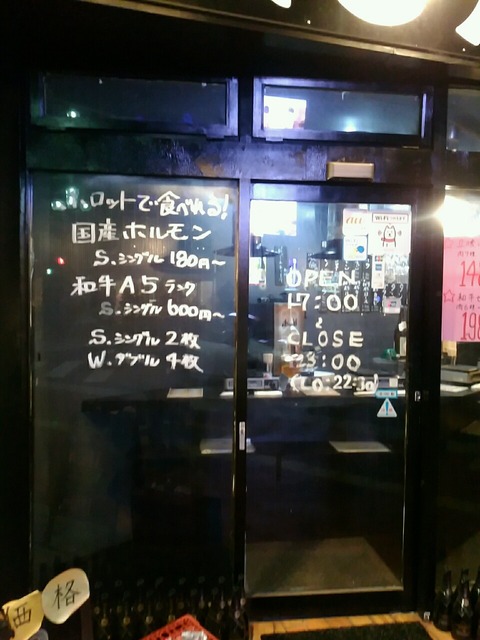 小ロットで食べれる!
国産ホルモン
S.シングル 180円〜
和牛A5ランク
S.シングル 600円〜
S.シングル 2枚
W.ダブル 4枚
au
Wi-Fi
OPEN
17:00
〜
CLOSE
23:00
(Lo:22:30)
価格